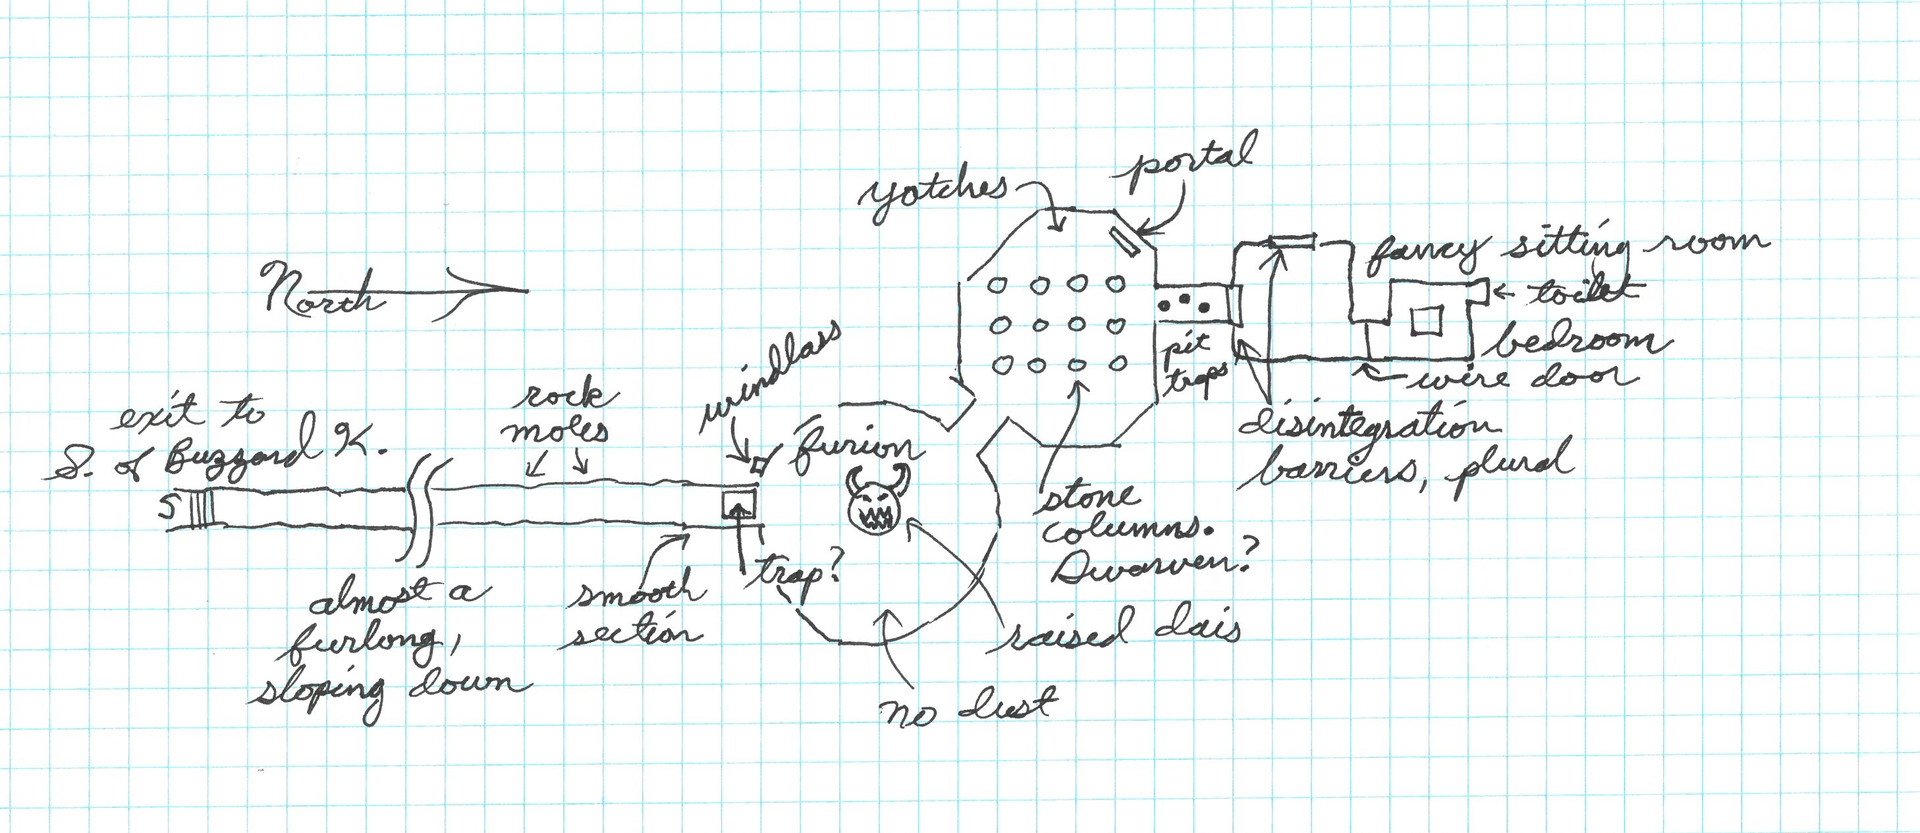 portal
yotches
fancy sitting room
North
toilet
bedroom
wire door
windlass
pit
traps
rock
moles
exit to
S. of Buzzard K.
furion
disintegration
barriers, plural
S
stone
columns.
Dwarven?
trap?
smooth
section
almost a
furlong,
sloping down
raised dais
no dust